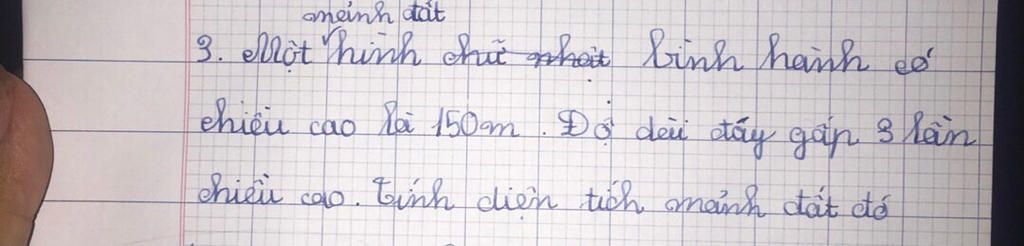 mảnh đất
3. Một hình chữ nhật bình hành có
chiều cao là 150m. Độ dài đáy gấp 3 lần
chiều cao. Tính diện tích mảnh đất đó